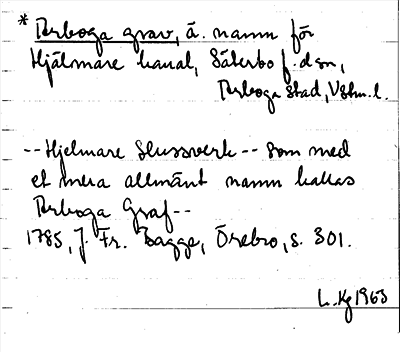 * Arboga grav, ä. namn för
Hjälmare kanal, Säterbo f. d sn,
Arboga stad, Vstm. l.
-- Hjelmare Slussverk -- som med
et mera allmänt namn kallas
Arboga Graf --
1785, J. Fr. Bagge, Örebro, s. 301.
L. Kg 1963